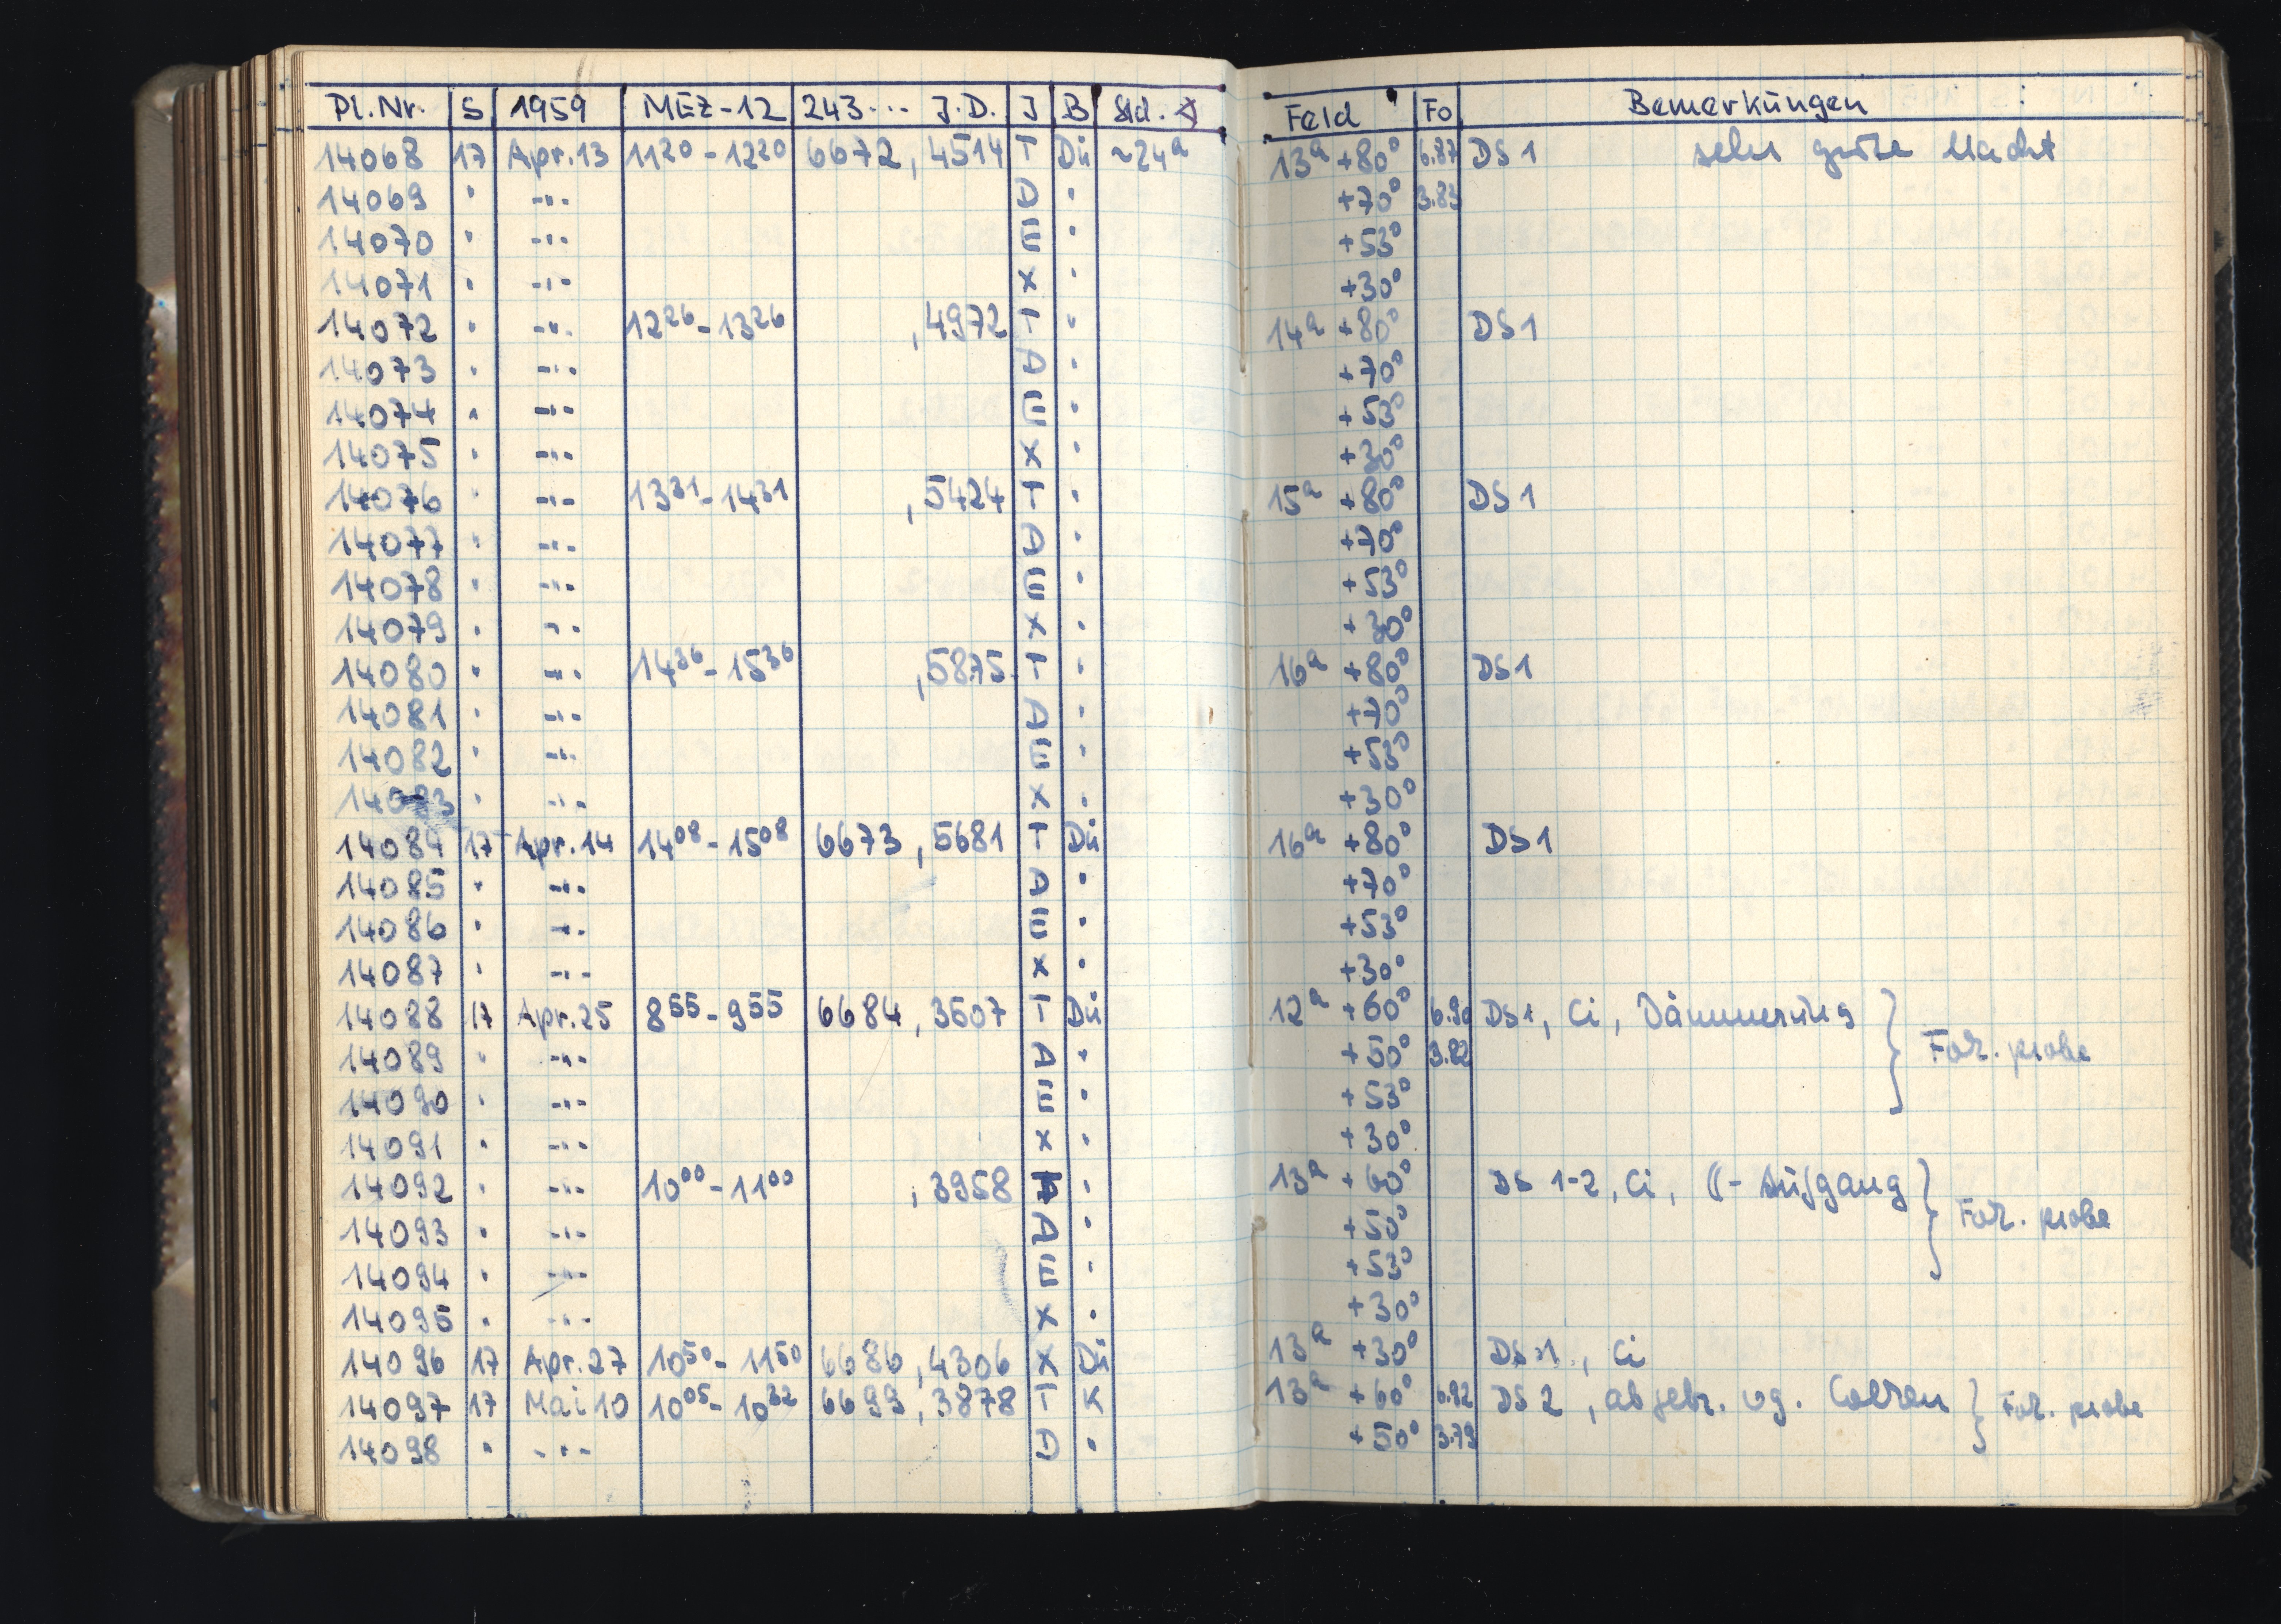 Pl.Nr. S 1959 MEZ-12 243... J.D. J B Std. ∢ Feld Fo Bemerkungen
14068 17 Apr.13 11 20 - 12 20 6672 , 4514 T Dü ~24h 13h +80° 6.87 DS 1 sehr gute Nacht
14069 " -"- D " +70° 3.85
14070 " -"- E " +53°
14071 " -"- X " +30°
14072 " -"- 12 26 - 13 26 , 4972 T " 14h +80° DS 1
14073 " -"- D " +70°
14074 " -"- E " +53°
14075 " -"- X " +30°
14076 " -"- 13 31 - 14 31 , 5424 T " 15h +80° DS 1
14077 " -"- D " +70°
14078 " -"- E " +53°
14079 " -"- X " +30°
14080 " -"- 14 36 - 15 36 , 5875 T " 16h +80° DS 1
14081 " -"- D " +70°
14082 " -"- E " +53°
14083 " -"- X " +30°
14084 17 Apr.14 14 08 - 15 08 6673 , 5681 T Dü 16h +80° DS 1
14085 " -"- D " +70°
14086 " -"- E " +53°
14087 " -"- X " +30°
14088 17 Apr.25 8 55 - 9 55 6684 , 3507 T Dü 12h +60° 6.90 DS 1, Ci, Dämmerung } Fok. probe
14089 " -"- D " +50° 3.82
14090 " -"- E " +53°
14091 " -"- X " +30°
14092 " -"- 10 00 - 11 00 , 3958 T " 13h +60° DS 1-2, Ci, ☾- Aufgang } Fok. probe
14093 " -"- D " +50°
14094 " -"- E " +53°
14095 " -"- X " +30°
14096 17 Apr.27 10 50 - 11 50 6686 , 4306 X Dü 13h +30° DS 1 , Ci
14097 17 Mai 10 10 05 - 10 32 6699 , 3878 T K 13h +60° 6.92 DS 2 , abgebr. wg. Wolken } Fok. probe
14098 " -"- D " +50° 3.79